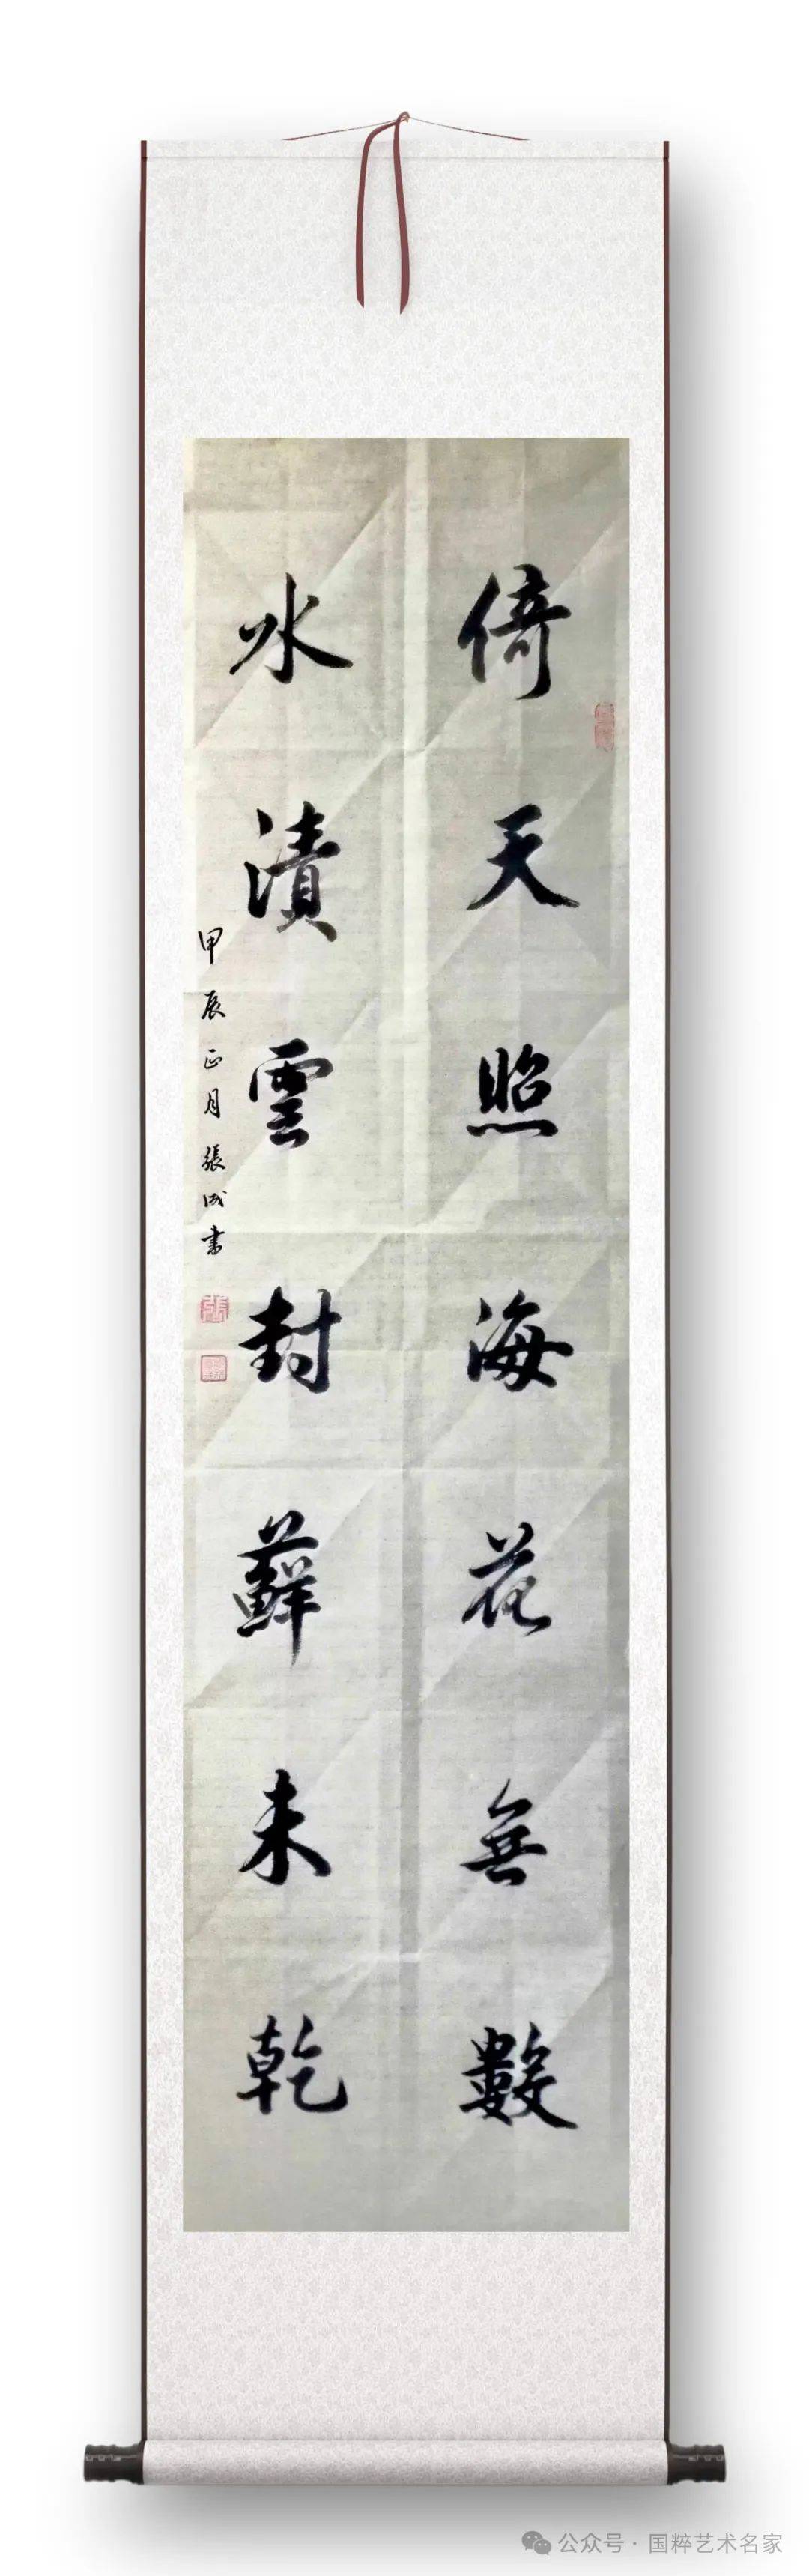 倚天照海花無數
水漬雲封蘚未乾
甲辰正月張成書
公众号 · 国粹艺术名家